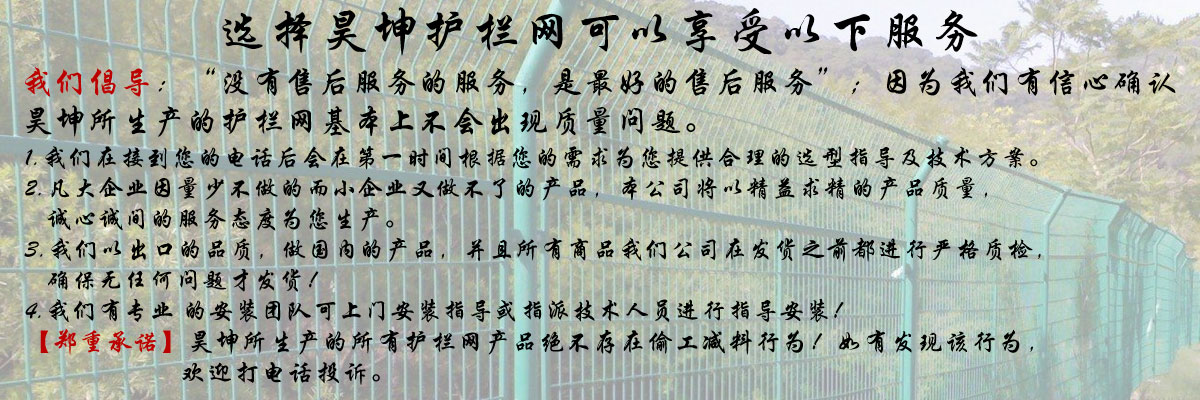 选择昊坤护栏网可以享受以下服务
我们倡导：“没有售后服务的服务，是最好的售后服务”；因为我们有信心确认
昊坤所生产的护栏网基本上不会出现质量问题。
1.我们在接到您的电话后会在第一时间根据您的需求为您提供合理的选型指导及技术方案。
2.凡大企业因量少不做的而小企业又做不了的产品，本公司将以精益求精的产品质量，
诚心诚间的服务态度为您生产。
3.我们以出口的品质，做国内的产品，并且所有商品我们公司在发货之前都进行严格质检，
确保无任何问题才发货！
4.我们有专业 的安装团队可上门安装指导或指派技术人员进行指导安装！
【郑重承诺】昊坤所生产的所有护栏网产品绝不存在偷工减料行为！如有发现该行为，
欢迎打电话投诉。